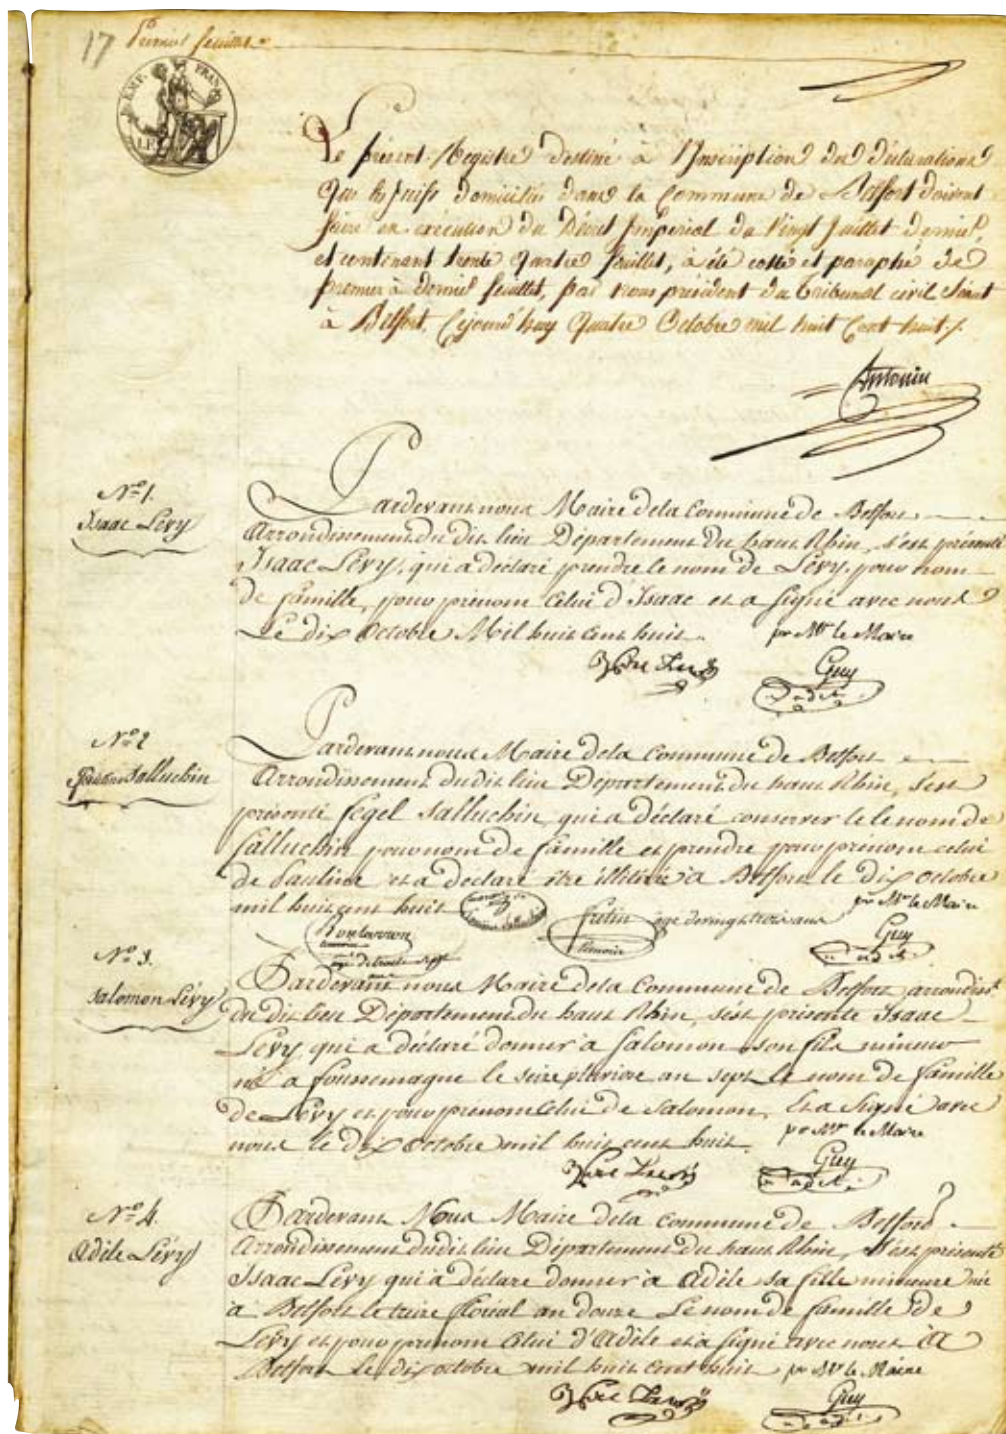 17 Premier feuillet
EMP. FRAN
Le présent Registre destiné à l'Inscription des déclarations
Que les Juifs domiciliés dans la Commune de Belfort doivent
faire en exécution du Décret Impérial du Vingt Juillet dernier,
et contenant trente quatre feuillets, à été cotté et paraphé de
premier à dernier feuillet, par nous président du Tribunal civil séant
à Belfort, Cejourd'huy Quatre Octobre mil huit Cent huit./.
Antonin
N.º 1.
Isaac Lévy
Pardevant nous Maire de la Commune de Belfort
Arrondissement du dit lieu Département du haut Rhin, s'est présenté
Isaac Lévy, qui a déclaré prendre le nom de Lévy, pour nom
de famille, pour prénom Celui d'Isaac et a signé avec nous
Le dix Octobre Mil huit cent huit.
pr Mr le Maire
Guy
adjt
N.º 2
Salluchin
Pardevant nous Maire de la Commune de Belfort
Arrondissement du dit lieu Département du haut Rhin, s'est
présenté fegel Salluchin, qui a déclaré conserver le nom de
Salluchin pour nom de famille et prendre pour prénom celui
de Pauline et a déclaré être illitérée à Belfort le dix octobre
mil huit cent huit
pr Mr le Maire
age de vingt trois ans
temoin
Guy
adjt
N.º 3.
Salomon Lévy
Pardevant nous Maire de la Commune de Belfort arrondist
du dit lieu Département du haut Rhin, s'est présenté Isaac
Lévy, qui a déclaré donner à Salomon son fils mineur
né a foussemagne le seize pluviose an sept le nom de famille
de Lévy et pour prénom Celui de Salomon, Et a Signé avec
nous le dix Octobre mil huit cent huit.
pr Mr le Maire
Guy
adjt
N.º 4.
Adèle Lévy
Pardevant Nous Maire de la commune de Belfort
Arrondissement du dit lieu Département du haut Rhin, s'est présenté
Isaac Lévy qui a déclaré donner à Adèle sa fille mineure née
à Belfort le treize floréal an douze Le nom de famille de
Lévy et pour prénom Celui d'Adèle et a signé avec nous à
Belfort Le dix octobre mil huit cent huit
pr Mr le Maire
Guy
adjt